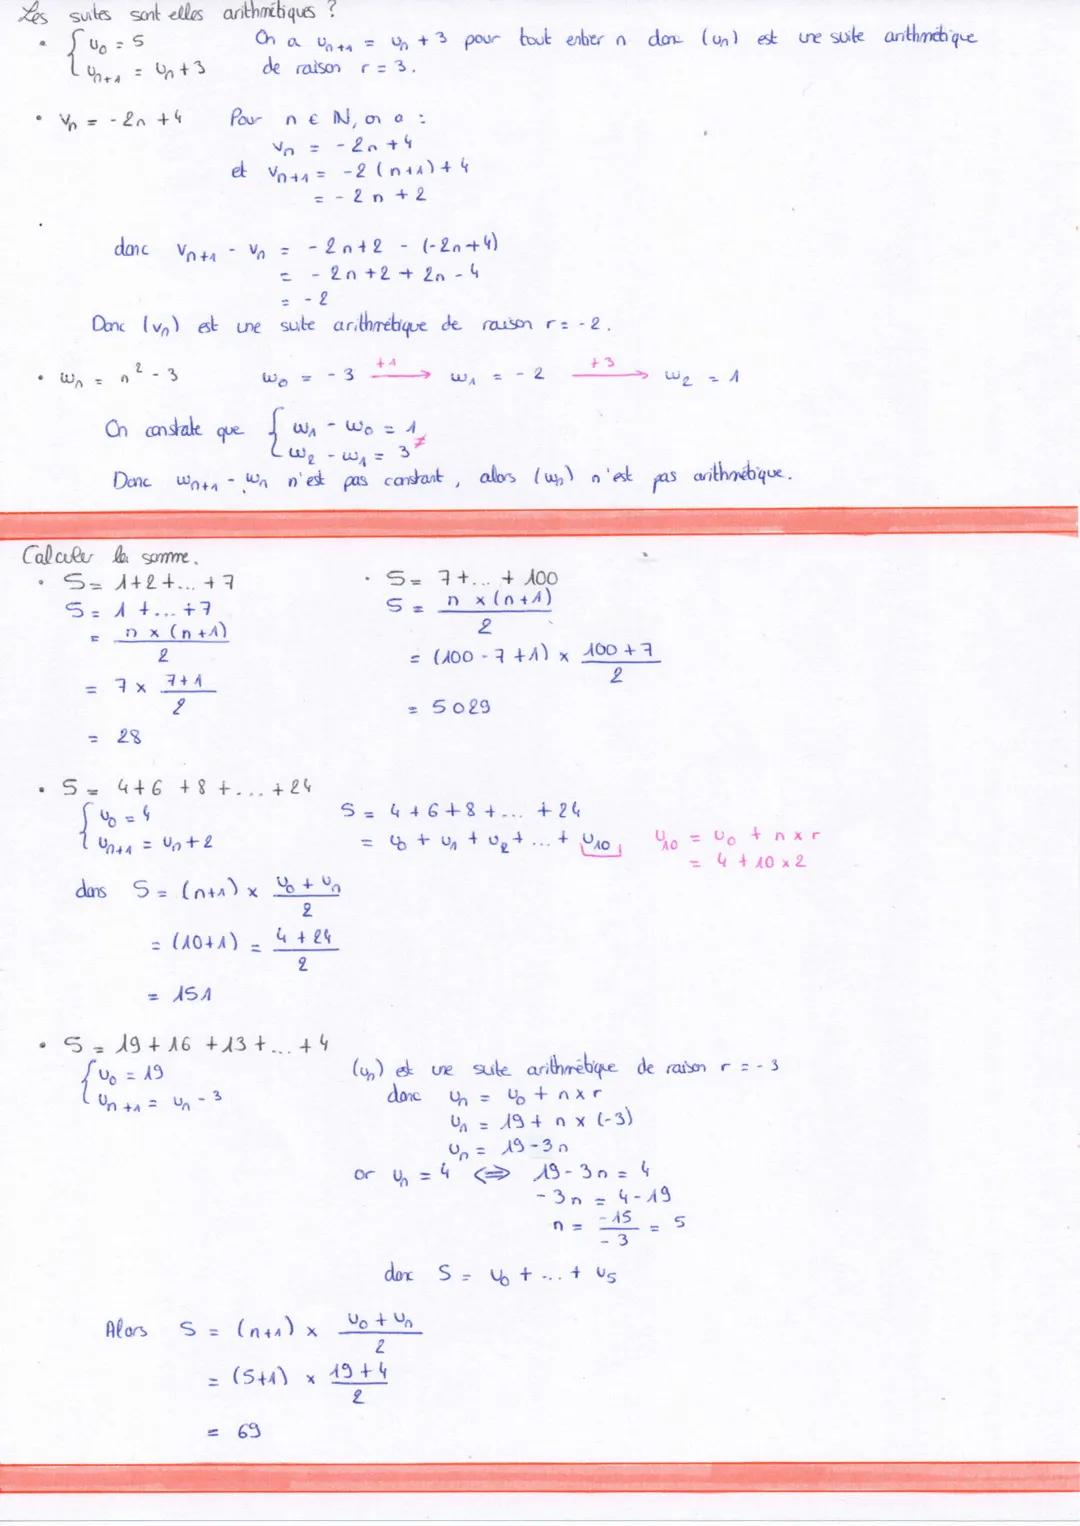 Les suites sont elles arithmétiques ?
• { u₀ = 5
uₙ₊₁ = uₙ + 3
On a uₙ₊₁ = uₙ + 3 pour tout entier n donc (uₙ) est une suite arithmétique
de raison r = 3.
• vₙ = -2n + 4 Pour n ∈ ℕ, on a :
vₙ = -2n + 4
et vₙ₊₁ = -2(n+1) + 4
= -2n + 2
donc vₙ₊₁ - vₙ = -2n + 2 - (-2n+4)
= -2n + 2 + 2n - 4
= -2
Donc (vₙ) est une suite arithmétique de raison r = -2.
• wₙ = n² - 3 w₀ = -3 +1→ w₁ = -2 +3→ w₂ = 1
On constate que { w₁ - w₀ = 1
w₂ - w₁ = 3 ≠
Donc wₙ₊₁ - wₙ n'est pas constant, alors (wₙ) n'est pas arithmétique.
Calculer la somme.
• S = 1+2+...+7
S = 1+...+7
= n × (n+1) / 2
= 7 × (7+1) / 2
= 28
• S = 7+...+100
S = n × (n+1) / 2
= (100-7+1) × (100+7) / 2
= 5029
• S = 4+6+8+...+24
{ u₀ = 4
uₙ₊₁ = uₙ + 2
S = 4+6+8+...+24
= u₀ + u₁ + u₂ + ... + u₁₀
u₁₀ = u₀ + n × r
= 4 + 10 × 2
dans S = (n+1) × (u₀ + uₙ) / 2
= (10+1) = (4 + 24) / 2
= 151
• S = 19 + 16 + 13 + ... + 4
{ u₀ = 19
uₙ₊₁ = uₙ - 3
(uₙ) est une suite arithmétique de raison r = -3
donc uₙ = u₀ + n × r
uₙ = 19 + n × (-3)
uₙ = 19 - 3n
or uₙ = 4 ⟺ 19 - 3n = 4
-3n = 4 - 19
n = -15 / -3 = 5
donc S = u₀ + ... + u₅
Alors S = (n+1) × (u₀ + uₙ) / 2
= (5+1) × (19+4) / 2
= 69